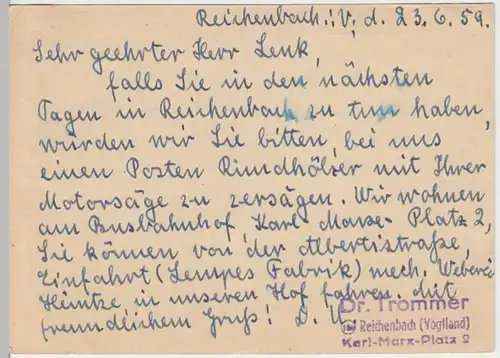 Reichenbach i. V., d. 23. 6. 59.
Sehr geehrter Herr Lenk,
falls Sie in den nächsten
Tagen in Reichenbach zu tun haben,
würden wir Sie bitten, bei uns
einen Posten Rundhölzer mit Ihrer
Motorsäge zu zersägen. Wir wohnen
am Busbahnhof, Karl-Marx-Platz 2,
Sie können von der Albertistraße,
Einfahrt (Lempes Fabrik) mech. Weberei
Heintze in unseren Hof fahren. Mit
freundlichem Gruß! D. U.
Dr. Trommer
Reichenbach (Vogtland)
Karl-Marx-Platz 2